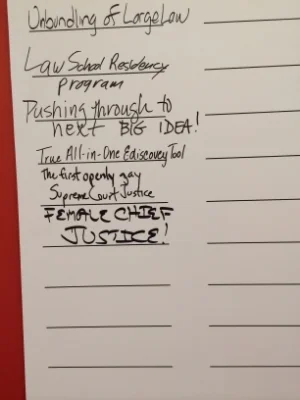 Unbundling of Large Law
Law School Residency
Program
Pushing through to
next BIG IDEA!
True All-in-One Ediscovery Tool
The first openly gay
Supreme Court Justice
FEMALE CHIEF
JUSTICE!